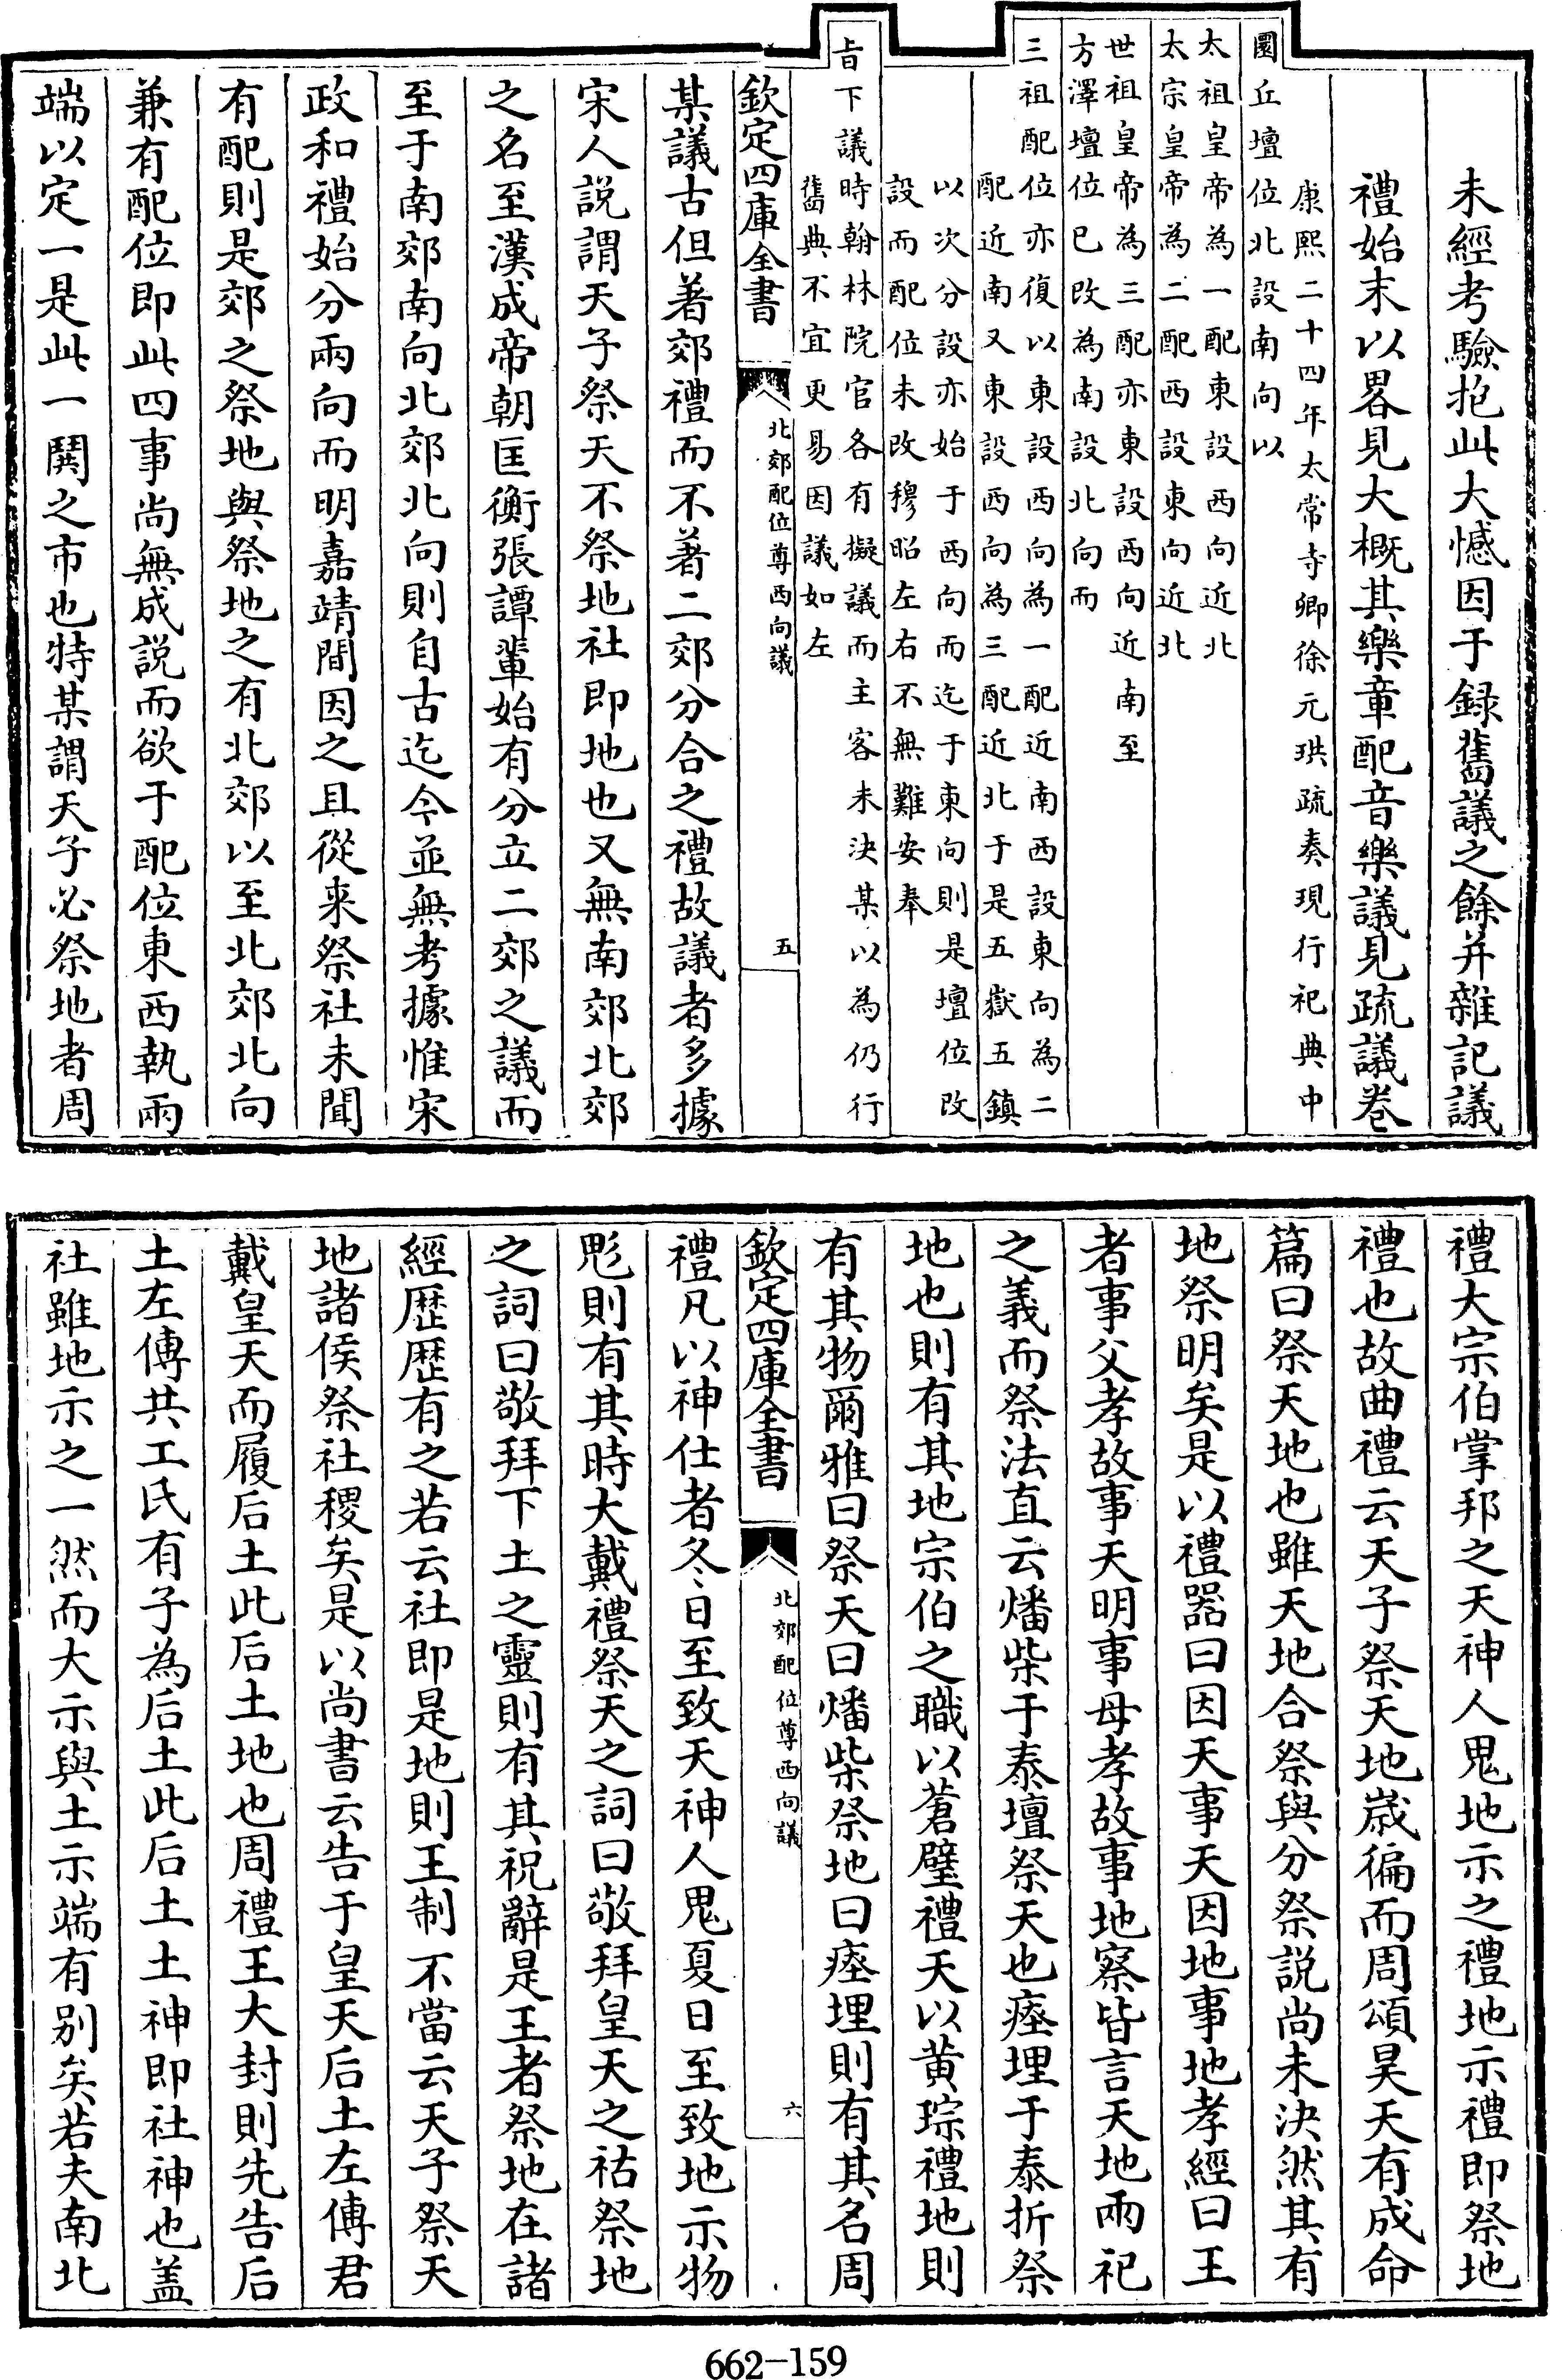 未經考驗抱此大憾因于録舊議之餘并雜記議
禮始末以畧見大概其樂章配音樂議見疏議卷
康熙二十四年太常寺卿徐元珙疏奏現行祀典中
圜丘壇位北設南向以
太祖皇帝為一配東設西向近北
太宗皇帝為二配西設東向近北
世祖皇帝為三配亦東設西向近南至
方澤壇位已改為南設北向而
三祖配位亦復以東設西向為一配近南西設東向為二
配近南又東設西向為三配近北于是五嶽五鎮
以次分設亦始于西向而迄于東向則是壇位改
設而配位未改穆昭左右不無難安奉
㫖下議時翰林院官各有擬議而主客未決某以為仍行
舊典不宜更易因議如左
欽定四庫全書 北郊配位尊西向議 五
某議古但著郊禮而不著二郊分合之禮故議者多據
宋人説謂天子祭天不祭地社即地也又無南郊北郊
之名至漢成帝朝匡衡張譚輩始有分立二郊之議而
至于南郊南向北郊北向則自古迄今並無考據惟宋
政和禮始分兩向而明嘉靖間因之且從来祭社未聞
有配則是郊之祭地與祭地之有北郊以至北郊北向
兼有配位即此四事尚無成説而欲于配位東西執兩
端以定一是此一鬨之市也特某謂天子必祭地者周
禮大宗伯掌邦之天神人鬼地示之禮地示禮即祭地
禮也故曲禮云天子祭天地嵗徧而周頌昊天有成命
篇曰祭天地也雖天地合祭與分祭説尚未決然其有
地祭明矣是以禮器曰因天事天因地事地孝經曰王
者事父孝故事天明事母孝故事地察皆言天地兩祀
之義而祭法直云燔柴于泰壇祭天也瘞埋于泰折祭
地也則有其地宗伯之職以蒼璧禮天以黄琮禮地則
有其物爾雅曰祭天曰燔柴祭地曰瘞埋則有其名周
欽定四庫全書 北郊配位尊西向議 六
禮凡以神仕者冬日至致天神人鬼夏日至致地示物
鬽則有其時大戴禮祭天之詞曰敬拜皇天之祜祭地
之詞曰敬拜下土之靈則有其祝辭是王者祭地在諸
經歴歴有之若云社即是地則王制不當云天子祭天
地諸侯祭社稷矣是以尚書云告于皇天后土左傳君
戴皇天而履后土此后土地也周禮王大封則先告后
土左傳共工氏有子為后土此后土土神即社神也盖
社雖地示之一然而大示與土示端有别矣若夫南北
662-159